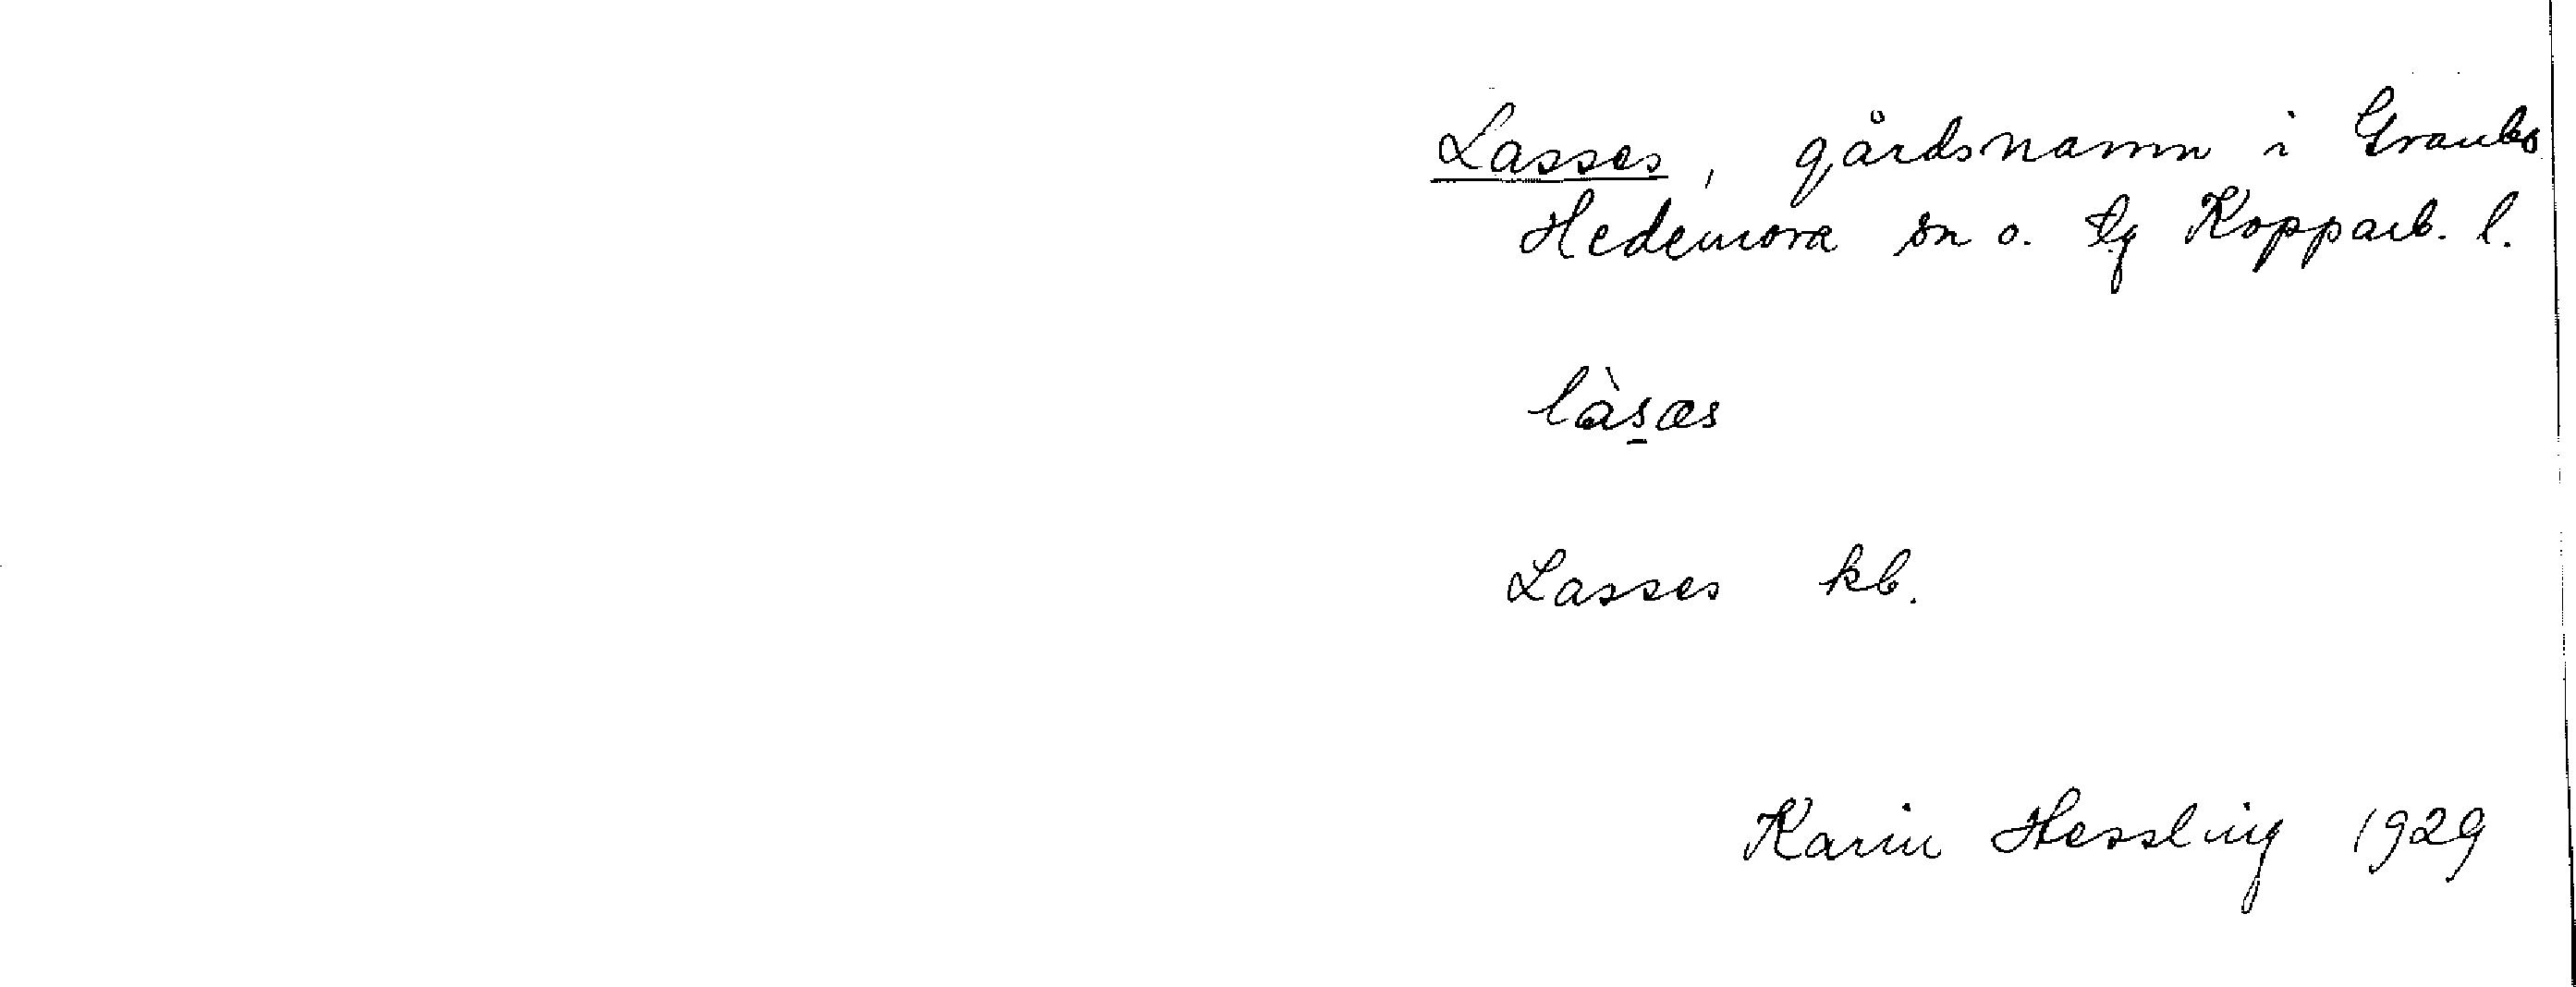 Lasses, gårdsnamn i Granbo
Hedemora sn o. tg Kopparb. l.
làs̱æs
Lasses kb.
Karin Hessling 1929